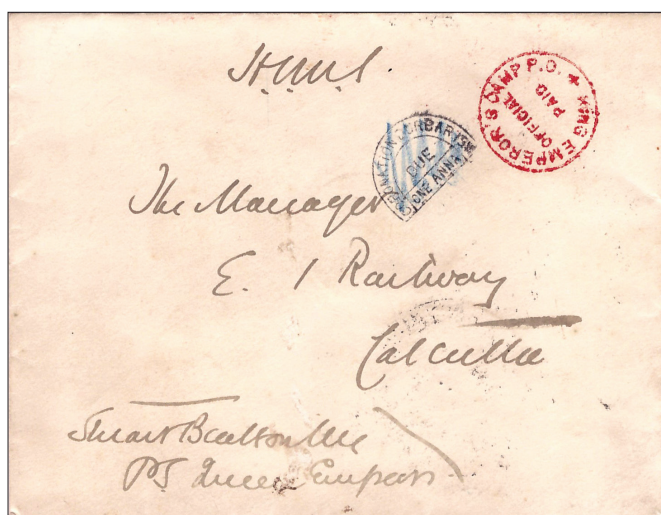 H.M.S
KING EMPEROR'S CAMP P.O.
OFFICIAL
PAID
CORONATION DURBAR
DUE
ONE ANNA
The Manager
E. I Railway
Calcutta
Stuart
PS Queen Empress